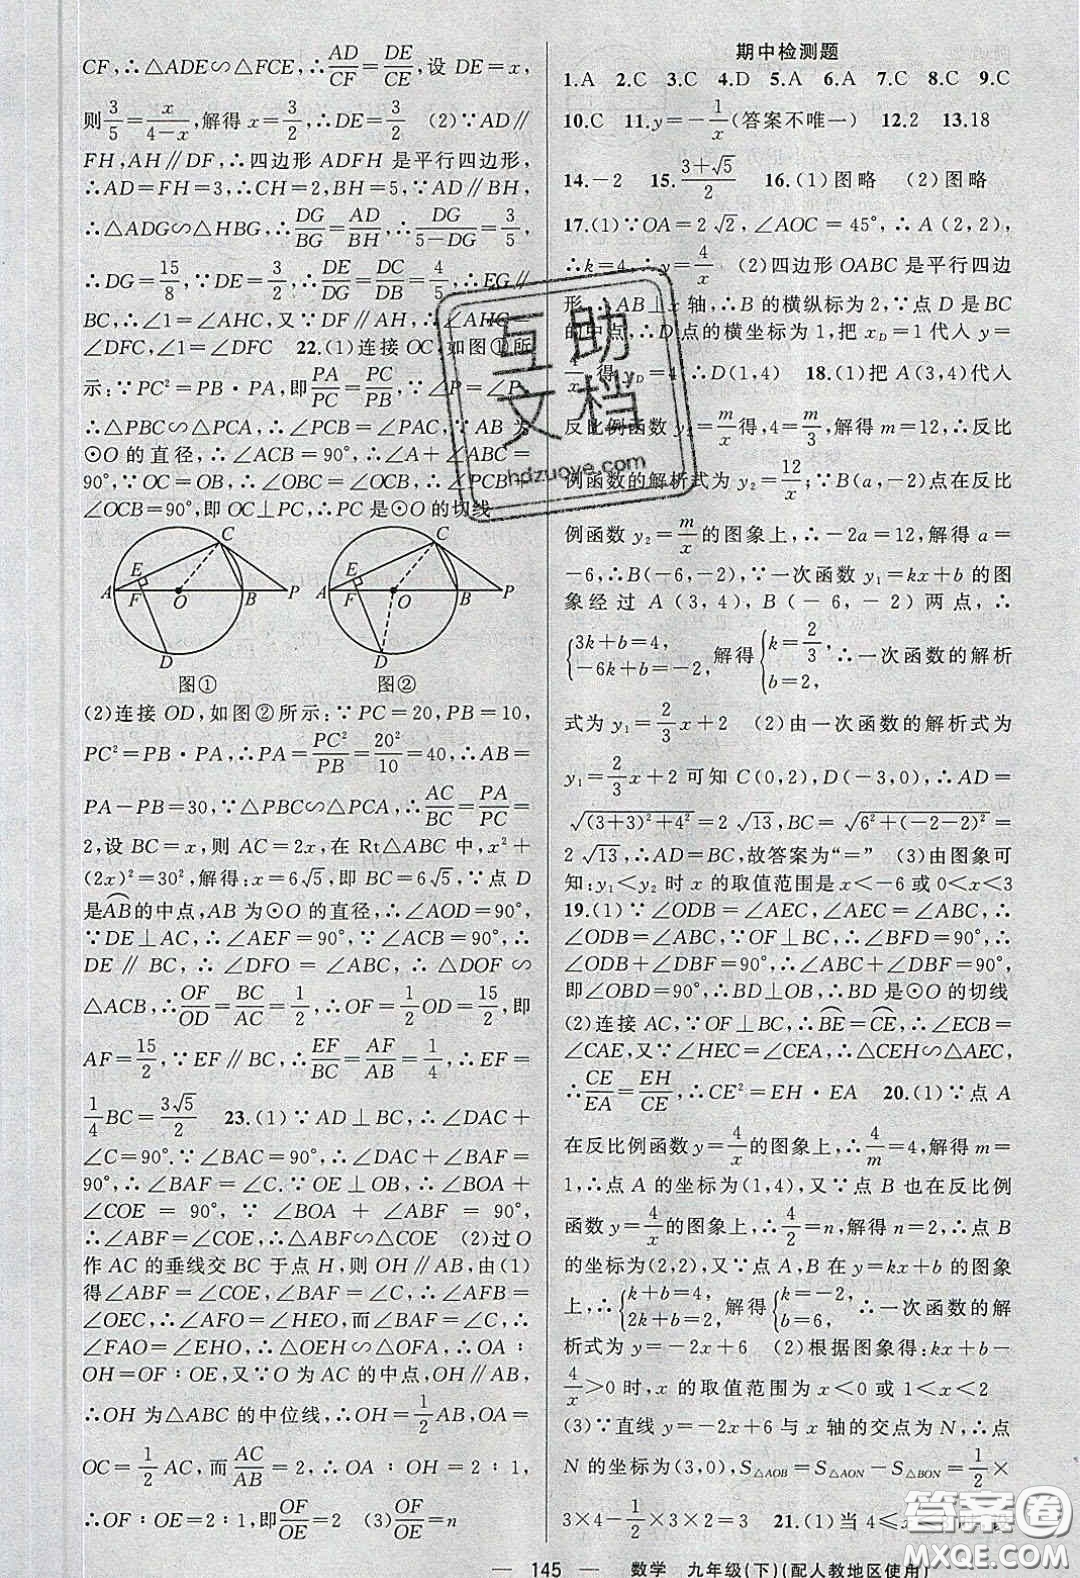 CF,∴△ADE∽△FCE,∴AD/CF=DE/CE,设 DE=x,
则3/5=x/(4-x),解得 x=3/2,∴DE=3/2 (2)∵AD∥
FH,AH∥DF,∴四边形 ADFH 是平行四边形,
∴AD=FH=3,∴CH=2,BH=5,∵AD∥BH,
∴△ADG∽△HBG,∴DG/BG=AD/BH,∴DG/(5-DG)=3/5,
∴DG=15/8,∵DE=3/2,∴DE/DG=DC/DB=4/5,∴EG∥
BC,∴∠1=∠AHC,又∵DF∥AH,∴∠AHC=
∠DFC,∠1=∠DFC 22.(1)连接 OC,如图①所
示:∵PC²=PB·PA,即PA/PC=PC/PB,∵∠P=∠P,
∴△PBC∽△PCA,∴∠PCB=∠PAC,∵AB 为
⊙O 的直径,∴∠ACB=90°,∴∠A+∠ABC=
90°,∵OC=OB,∴∠OBC=∠OCB,∴∠PCB+
∠OCB=90°,即 OC⊥PC,∴PC 是⊙O 的切线
C E A F O B P D
C E A F O B P D
图① 图②
(2)连接 OD,如图②所示:∵PC=20,PB=10,
PC²=PB·PA,∴PA=PC²/PB=20²/10=40,∴AB=
PA-PB=30,∵△PBC∽△PCA,∴AC/BC=PA/PC=
2,设 BC=x,则 AC=2x,在 Rt△ABC 中,x²+
(2x)²=30²,解得:x=6√5,即 BC=6√5,∵点 D
是AB的中点,AB 为⊙O 的直径,∴∠AOD=90°,
∵DE⊥AC,∴∠AEF=90°,∵∠ACB=90°,∴
DE∥BC,∴∠DFO=∠ABC,∴△DOF∽
△ACB,∴OF/OD=BC/AC=1/2,∴OF=1/2OD=15/2,即
AF=15/2,∵EF∥BC,∴EF/BC=AF/AB=1/4,∴EF=
1/4BC=3√5/2 23.(1)∵AD⊥BC,∴∠DAC+
∠C=90°.∵∠BAC=90°,∴∠DAC+∠BAF=
90°,∴∠BAF=∠C.∵OE⊥OB,∴∠BOA+
∠COE=90°,∵∠BOA+∠ABF=90°,
∴∠ABF=∠COE,∴△ABF∽△COE (2)过 O
作 AC 的垂线交 BC 于点 H,则 OH∥AB,由(1)
得∠ABF=∠COE,∠BAF=∠C,∴∠AFB=
∠OEC,∴∠AFO=∠HEO,而∠BAF=∠C,∴
∠FAO=∠EHO,∴△OEH∽△OFA,∴OA∶
OH=OF∶OE,又∵O 为 AC 的中点,OH∥AB,
∴OH 为△ABC 的中位线,∴OH=1/2AB,OA=
OC=1/2AC,而AC/AB=2,∴OA∶OH=2∶1,
∴OF∶OE=2∶1,即OF/OE=2 (3)OF/OE=n
期中检测题
1.A 2.C 3.C 4.D 5.A 6.A 7.C 8.C 9.C
10.C 11.y=-1/x(答案不唯一) 12.2 13.18
14.-2 15.(3+√5)/2 16.(1)图略 (2)图略
17.(1)∵OA=2√2,∠AOC=45°,∴A(2,2),
∴k=4,∴y=4/x (2)四边形 OABC 是平行四边
形,∴AB⊥x 轴,∴B 的横纵标为 2,∵点 D 是 BC
的中点,∴D 点的横坐标为 1,把 x_D=1 代入 y=
4/x,得 y_D=4,∴D(1,4) 18.(1)把 A(3,4)代人
反比例函数 y₂=m/x得,4=m/3,解得 m=12,∴反比
例函数的解析式为 y₂=12/x;∵B(a,-2)点在反比
例函数 y₂=m/x的图象上,∴-2a=12,解得 a=
-6,∴B(-6,-2),∵一次函数 y₁=kx+b 的图
象经过 A(3,4),B(-6,-2)两点,∴
{3k+b=4, -6k+b=-2,解得{k=2/3, b=2,∴一次函数的解析
式为 y₁=2/3x+2 (2)由一次函数的解析式为
y₁=2/3x+2 可知 C(0,2),D(-3,0),∴AD=
√((3+3)²+4²)=2√13,BC=√(6²+(-2-2)²)=
2√13,∴AD=BC,故答案为“=” (3)由图象可
知:y₁<y₂ 时 x 的取值范围是 x<-6 或 0<x<3
19.(1)∵∠ODB=∠AEC,∠AEC=∠ABC,∴
∠ODB=∠ABC,∵OF⊥BC,∴∠BFD=90°,∴
∠ODB+∠DBF=90°,∴∠ABC+∠DBF=90°,
即∠OBD=90°,∴BD⊥OB,∴BD 是⊙O 的切线
(2)连接 AC,∵OF⊥BC,∴BE=CE,∴∠ECB=
∠CAE,又∵∠HEC=∠CEA,∴△CEH∽△AEC,
∴CE/EA=EH/CE,∴CE²=EH·EA 20.(1)∵点 A
在反比例函数 y=4/x的图象上,∴4/m=4,解得 m=
1,∴点 A 的坐标为(1,4),又∵点 B 也在反比例
函数 y=4/x的图象上,∴4/2=n,解得 n=2,∴点 B
的坐标为(2,2),又∵点 A,B 在 y=kx+b 的图象
上,∴{k+b=4, 2k+b=2,解得{k=-2, b=6,∴一次函数的解
析式为 y=-2x+6 (2)根据图象得:kx+b-
4/x>0 时,x 的取值范围为 x<0 或 1<x<2
(3)∵直线 y=-2x+6 与 x 轴的交点为 N,∴点
N 的坐标为(3,0),S△AOB=S△AON-S△BON=1/2×
3×4-1/2×3×2=3 21.(1)当 4≤x
— 145 — 数学 九年级(下)(配人教地区使用)
互助文档
hdzuoye.com
答案圈
MXQE.COM